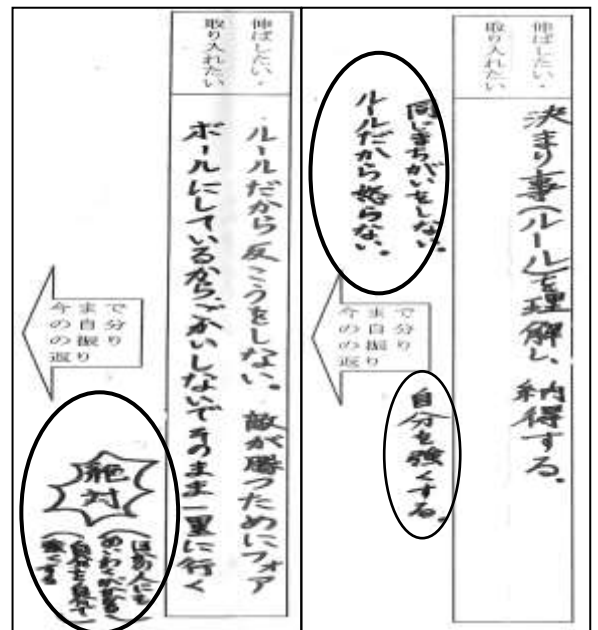 伸ばしたい・
取り入れたい
決まり事(ルール)を理解し、納得する。
同じまちがいをしない。
ルールだから怒らない。
今まで
の自分
の振り
返り
自分を強くする。
伸ばしたい・
取り入れたい
・ルールだから反こうをしない。敵が勝つためにフォア
ボールにしているから、ごかいしないでそのまま一塁に行く
今まで
の自分
の振り
返り
絶対
ほかの人にも
めいわくがかかる
強くする